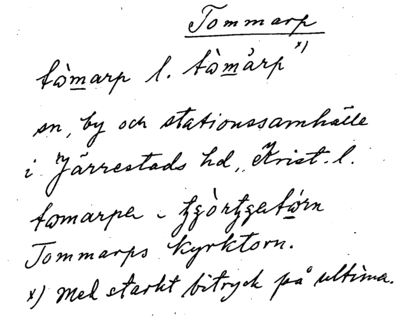 Tommarp
tòmarp l. tòmårp x)
sn, by och stationssamhälle
i Järrestads hd, Krist. l.
tomarpa
Tommarps kyrktorn.
x) Med starkt bitryck på ultima.